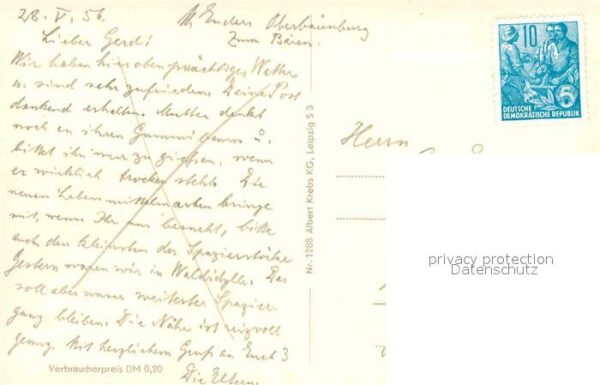 28. V. 56.
M. Enders Oberbärenburg
Zum Bären.
Lieber Gerd!
Wir haben hier oben prächtiges Wetter
u. sind sehr zufrieden. Deine Post
dankend erhalten. Mutter denkt
noch an ihren Gummibaum u.
bittet ihn nur zu giessen, wenn
er wirklich trocken steht. Die
neuen Lebensmittelmarken bringe
mit, wenn Ihr uns besucht, bitte
auch den kleinsten der Spazierstöcke.
Gestern waren wir in Waldidylle. Das
soll aber unser weitester Spazier-
gang bleiben. Die Nähe ist reizvoll
genug. Mit herzlichem Gruß an Euch 3
Die Eltern.
Verbraucherpreis DM 0,20
Nr. 1288 Albert Krebs KG, Leipzig S 3
10
DEUTSCHE
DEMOKRATISCHE REPUBLIK
5
Herrn
privacy protection
Datenschutz